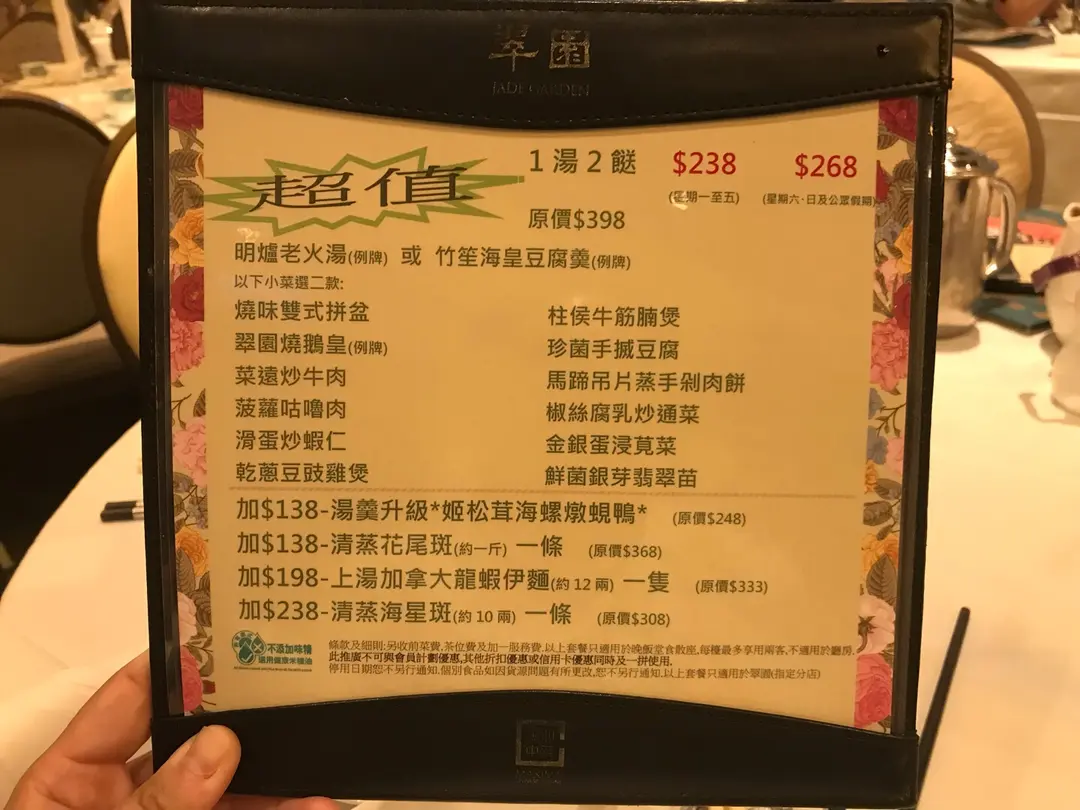 翠園
JADE GARDEN
超值
1湯2餸 $238 $268
(星期一至五) (星期六·日及公眾假期)
原價$398
明爐老火湯(例牌) 或 竹笙海皇豆腐羹(例牌)
以下小菜選二款:
燒味雙式拼盆 柱侯牛筋腩煲
翠園燒鵝皇(例牌) 珍菌手搣豆腐
菜遠炒牛肉 馬蹄吊片蒸手剁肉餅
菠蘿咕嚕肉 椒絲腐乳炒通菜
滑蛋炒蝦仁 金銀蛋浸莧菜
乾蔥豆豉雞煲 鮮菌銀芽翡翠苗
加$138-湯羹升級*姬松茸海螺燉蜆鴨* (原價$248)
加$138-清蒸花尾斑(約一斤) 一條 (原價$368)
加$198-上湯加拿大龍蝦伊麵(約 12 兩) 一隻 (原價$333)
加$238-清蒸海星斑(約 10 兩) 一條 (原價$308)
不添加味精
選用健康米糠油
條款及細則:另收前菜費,茶位費及加一服務費.以上套餐只適用於晚飯堂食散座,每檯最多享用兩客,不適用於廳房.
此推廣不可與會員計劃優惠,其他折扣優惠或信用卡優惠同時及一拼使用.
停用日期您不另行通知.個別食品如因貨源問題有所更改,您不另行通知.以上套餐只適用於翠園(指定分店)